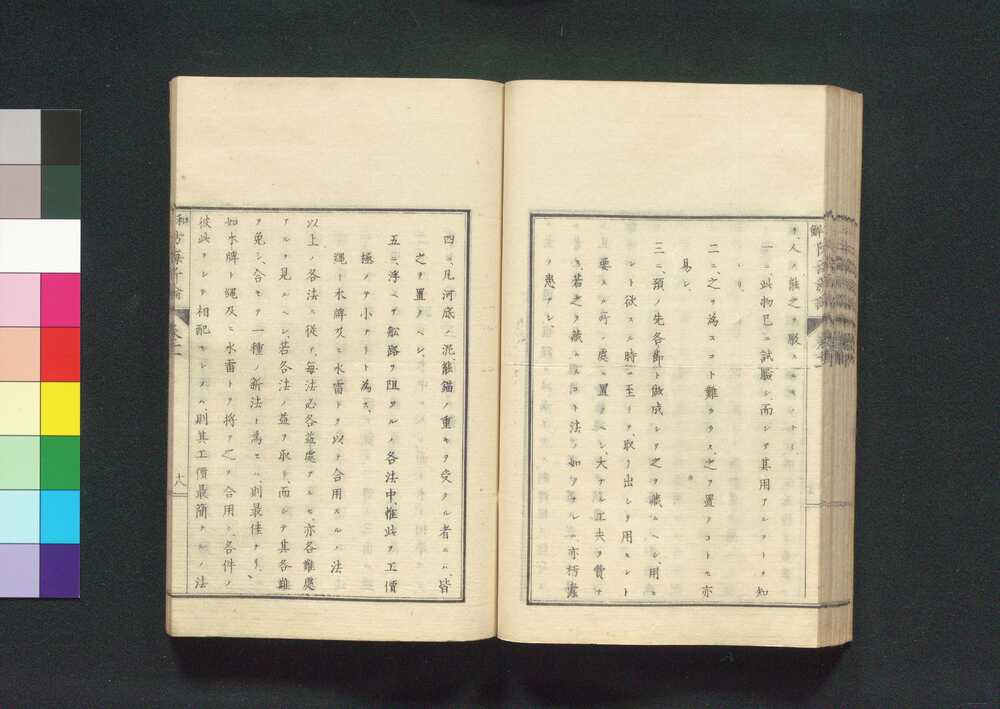 一ニ、此物已ニ試驗シ、而シテ其用アルコトヲ知
レリ、
二ニ、之ヲ為スコト難カラス、之ヲ置クコトモ亦
易シ、
三ニ、預メ先各節ヲ做成シテ之ヲ藏ムヘシ、用ヒ
ント欲スル時ニ至リ、取リ出シテ用ヒント
要スル所ノ處ニ置クヘシ、大ナル工夫ヲ費サ
ス、若之ヲ藏ムルコト法ノ如クナレハ、亦朽蠹
ヲ患ヘシ
四ニ、凡河底ノ泥、能錨ノ重キヲ受クル者ニハ、皆
之ヲ置クヘシ、
五ニ、浮ヘテ舩路ヲ阻ツルノ各法中、惟此ヲ工價
極メテ小ナリト為ス、
繩ト木牌及ヒ水雷トヲ以テ合用スルノ法
以上ノ各法ニ從ヘハ、每法必各益處アルモ、亦各難處
アルヲ見ルヘシ、若各法ノ益ヲ取リ、而シテ其各難
ヲ免レ、合セテ一種ノ新法ト為セハ、則最佳ナリ、
如木牌ト繩及ヒ水雷トヲ將テ之ヲ合用シ、各件ノ
彼此ヲシテ相配セシメハ、則其工價最簡ナルノ法